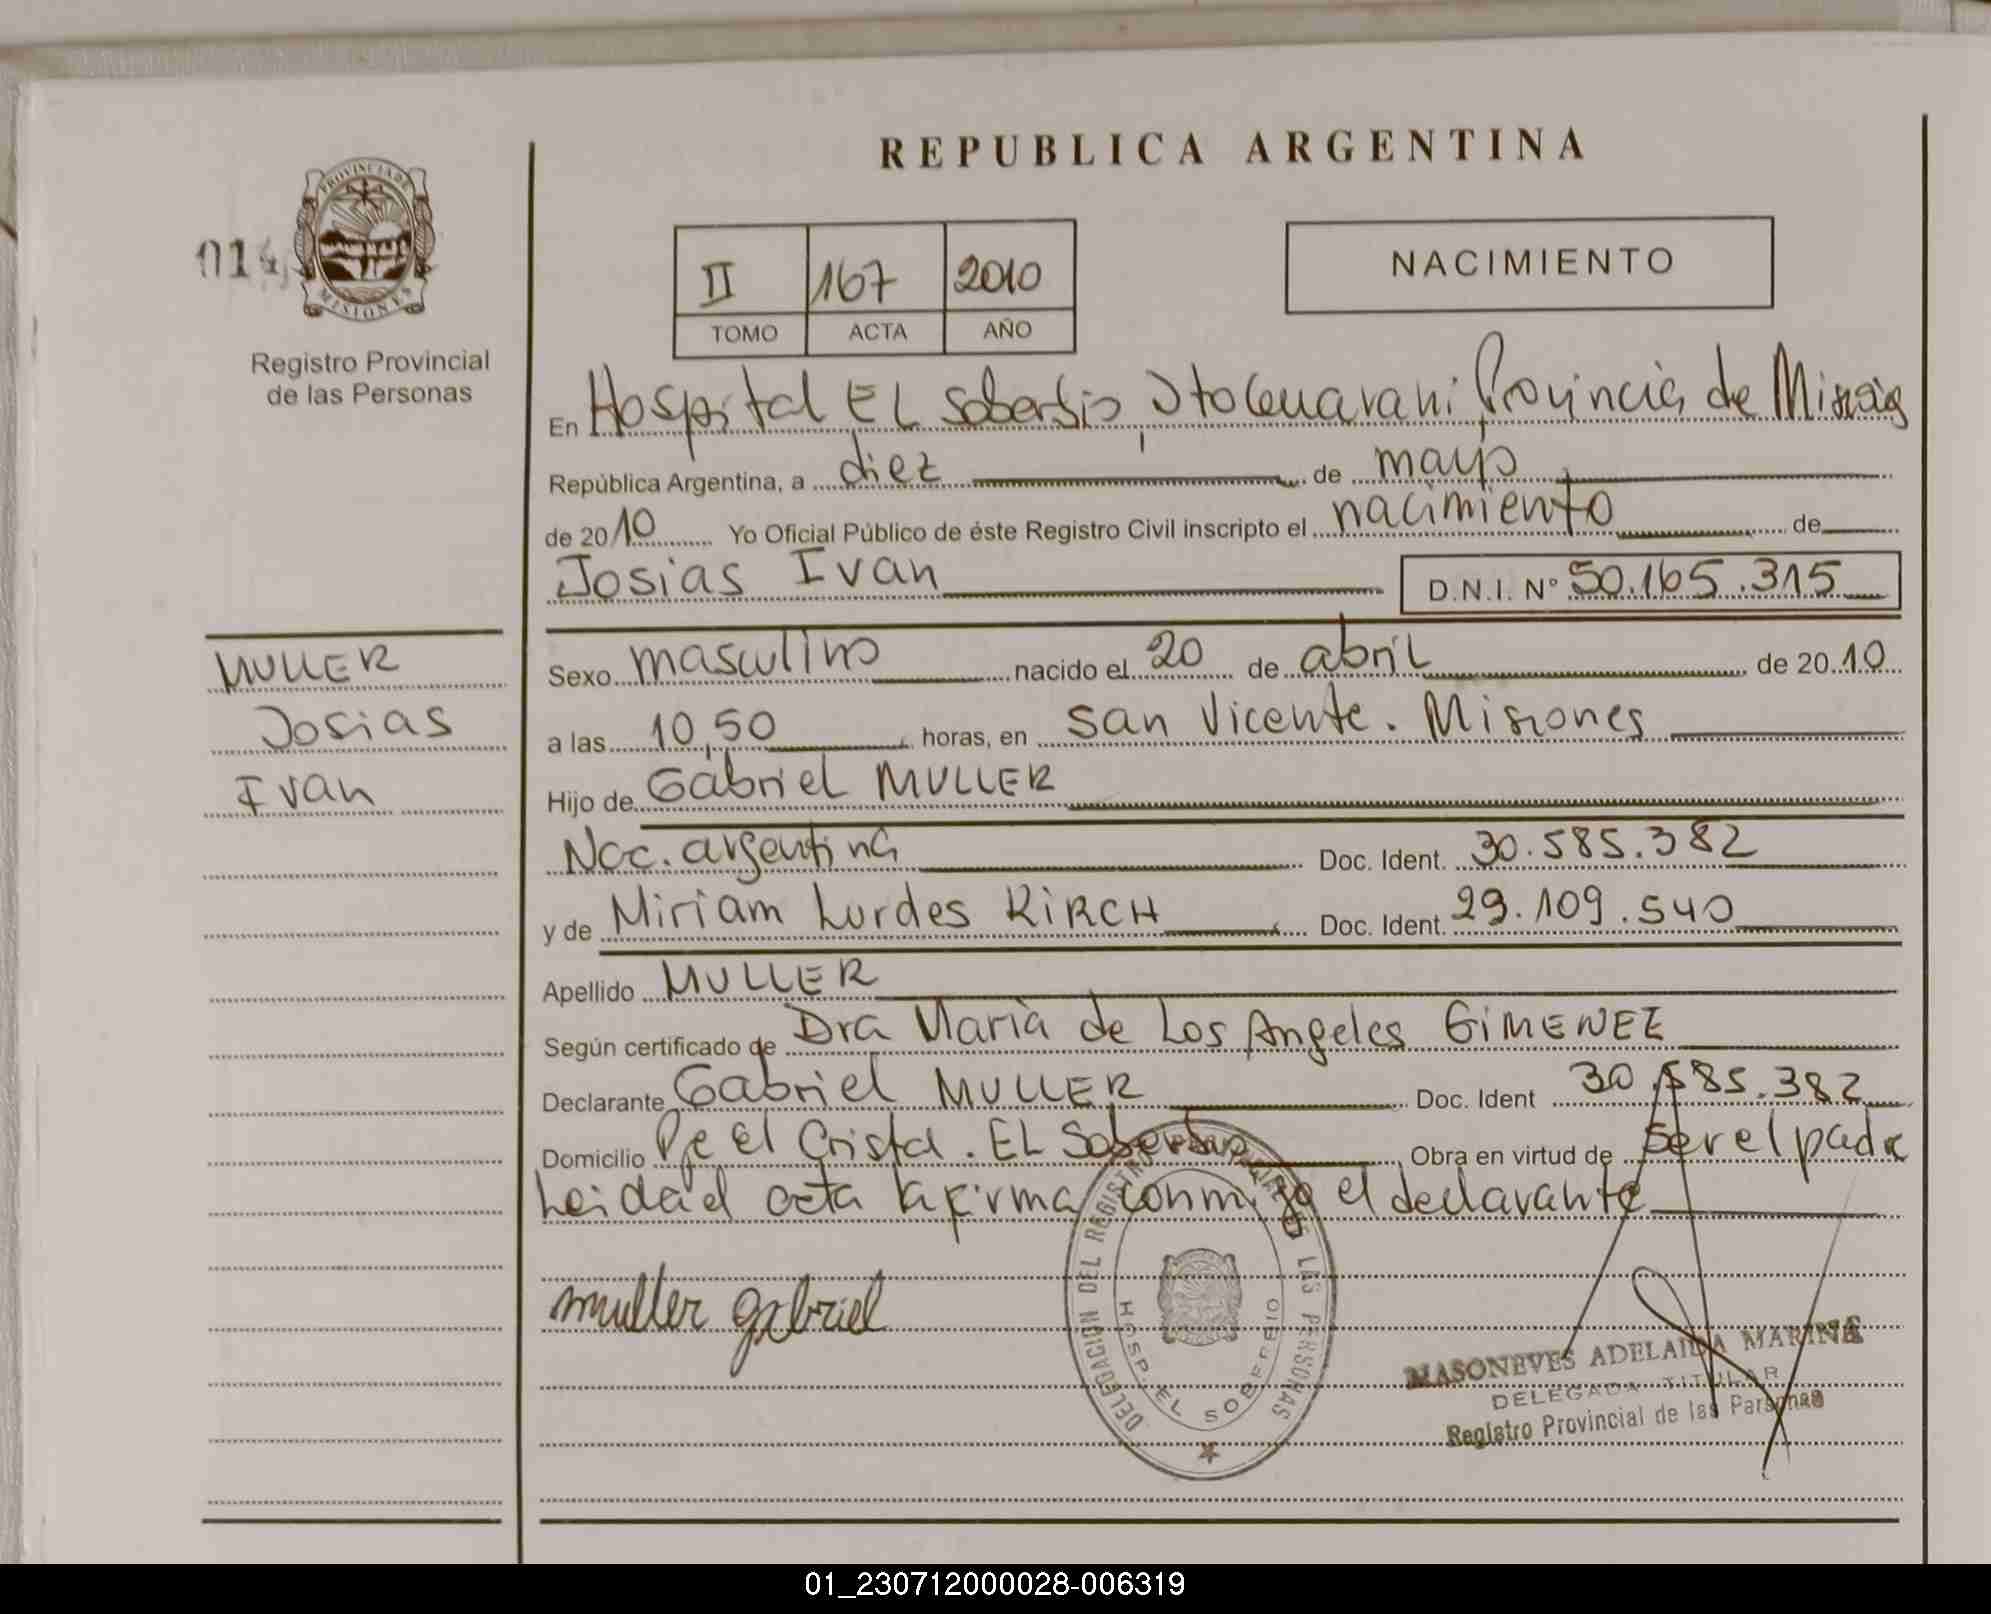 REPUBLICA ARGENTINA
014
PROVINCIA DE
MISIONES
Registro Provincial
de las Personas
II 167 2010
TOMO ACTA AÑO
NACIMIENTO
En Hospital EL Soberbio, Dto Guarani Provincia de Misiones
República Argentina, a diez de mayo
de 2010 Yo Oficial Público de éste Registro Civil inscripto el nacimiento de
Josias Ivan D.N.I. N° 50.165.315
MULLER
Josias
Ivan
Sexo masculino nacido el 20 de abril de 2010
a las 10,50 horas, en San Vicente. Misiones
Hijo de Gabriel MULLER
Nac. argentina Doc. Ident. 30.585.382
y de Miriam Lurdes KiRCH Doc. Ident. 29.109.540
Apellido MULLER
Según certificado de Dra Maria de Los Angeles GiMENEZ
Declarante Gabriel MULLER Doc. Ident 30.585.382
Domicilio Pje El Cristal. EL Soberbio Obra en virtud de ser el padre
Leida el acta la firma conmigo el declarante
muller gabriel
DELEGACION DEL REGISTRO PROVINCIAL DE LAS PERSONAS
HOSP. EL SOBERBIO
MASONEVES ADELAIDA MARINA
DELEGADA TITULAR
Registro Provincial de las Personas
01_230712000028-006319